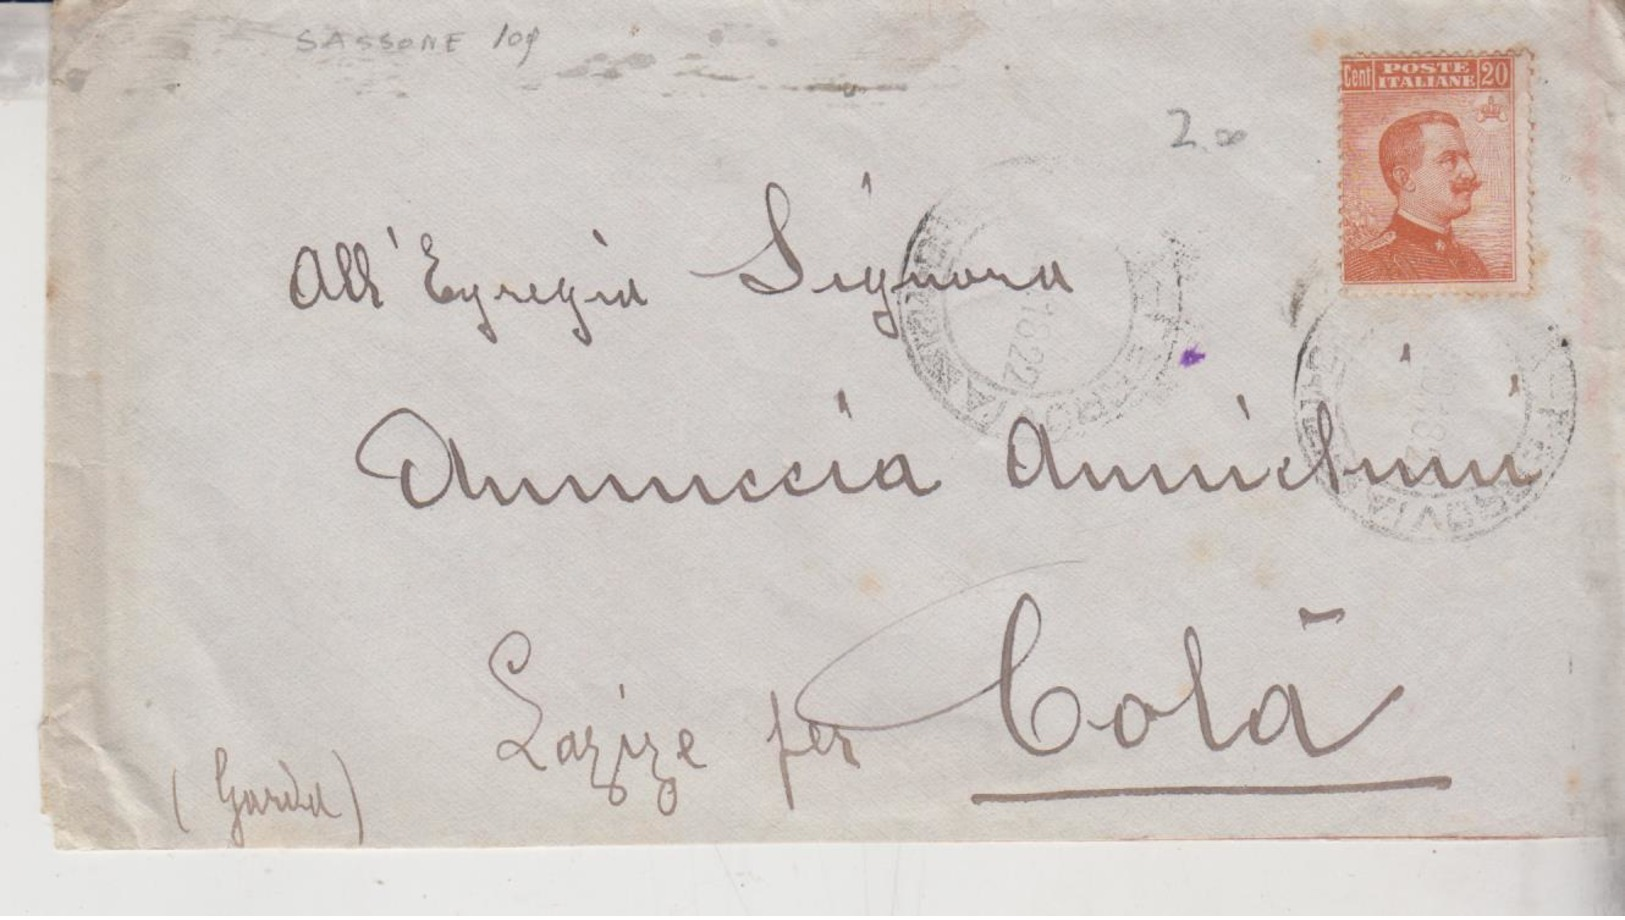 SASSONE 109
Cent POSTE ITALIANE 20
2.00
All'Egregia Signora
Annuccia Annichini
Lazize per Colà
(Garda)